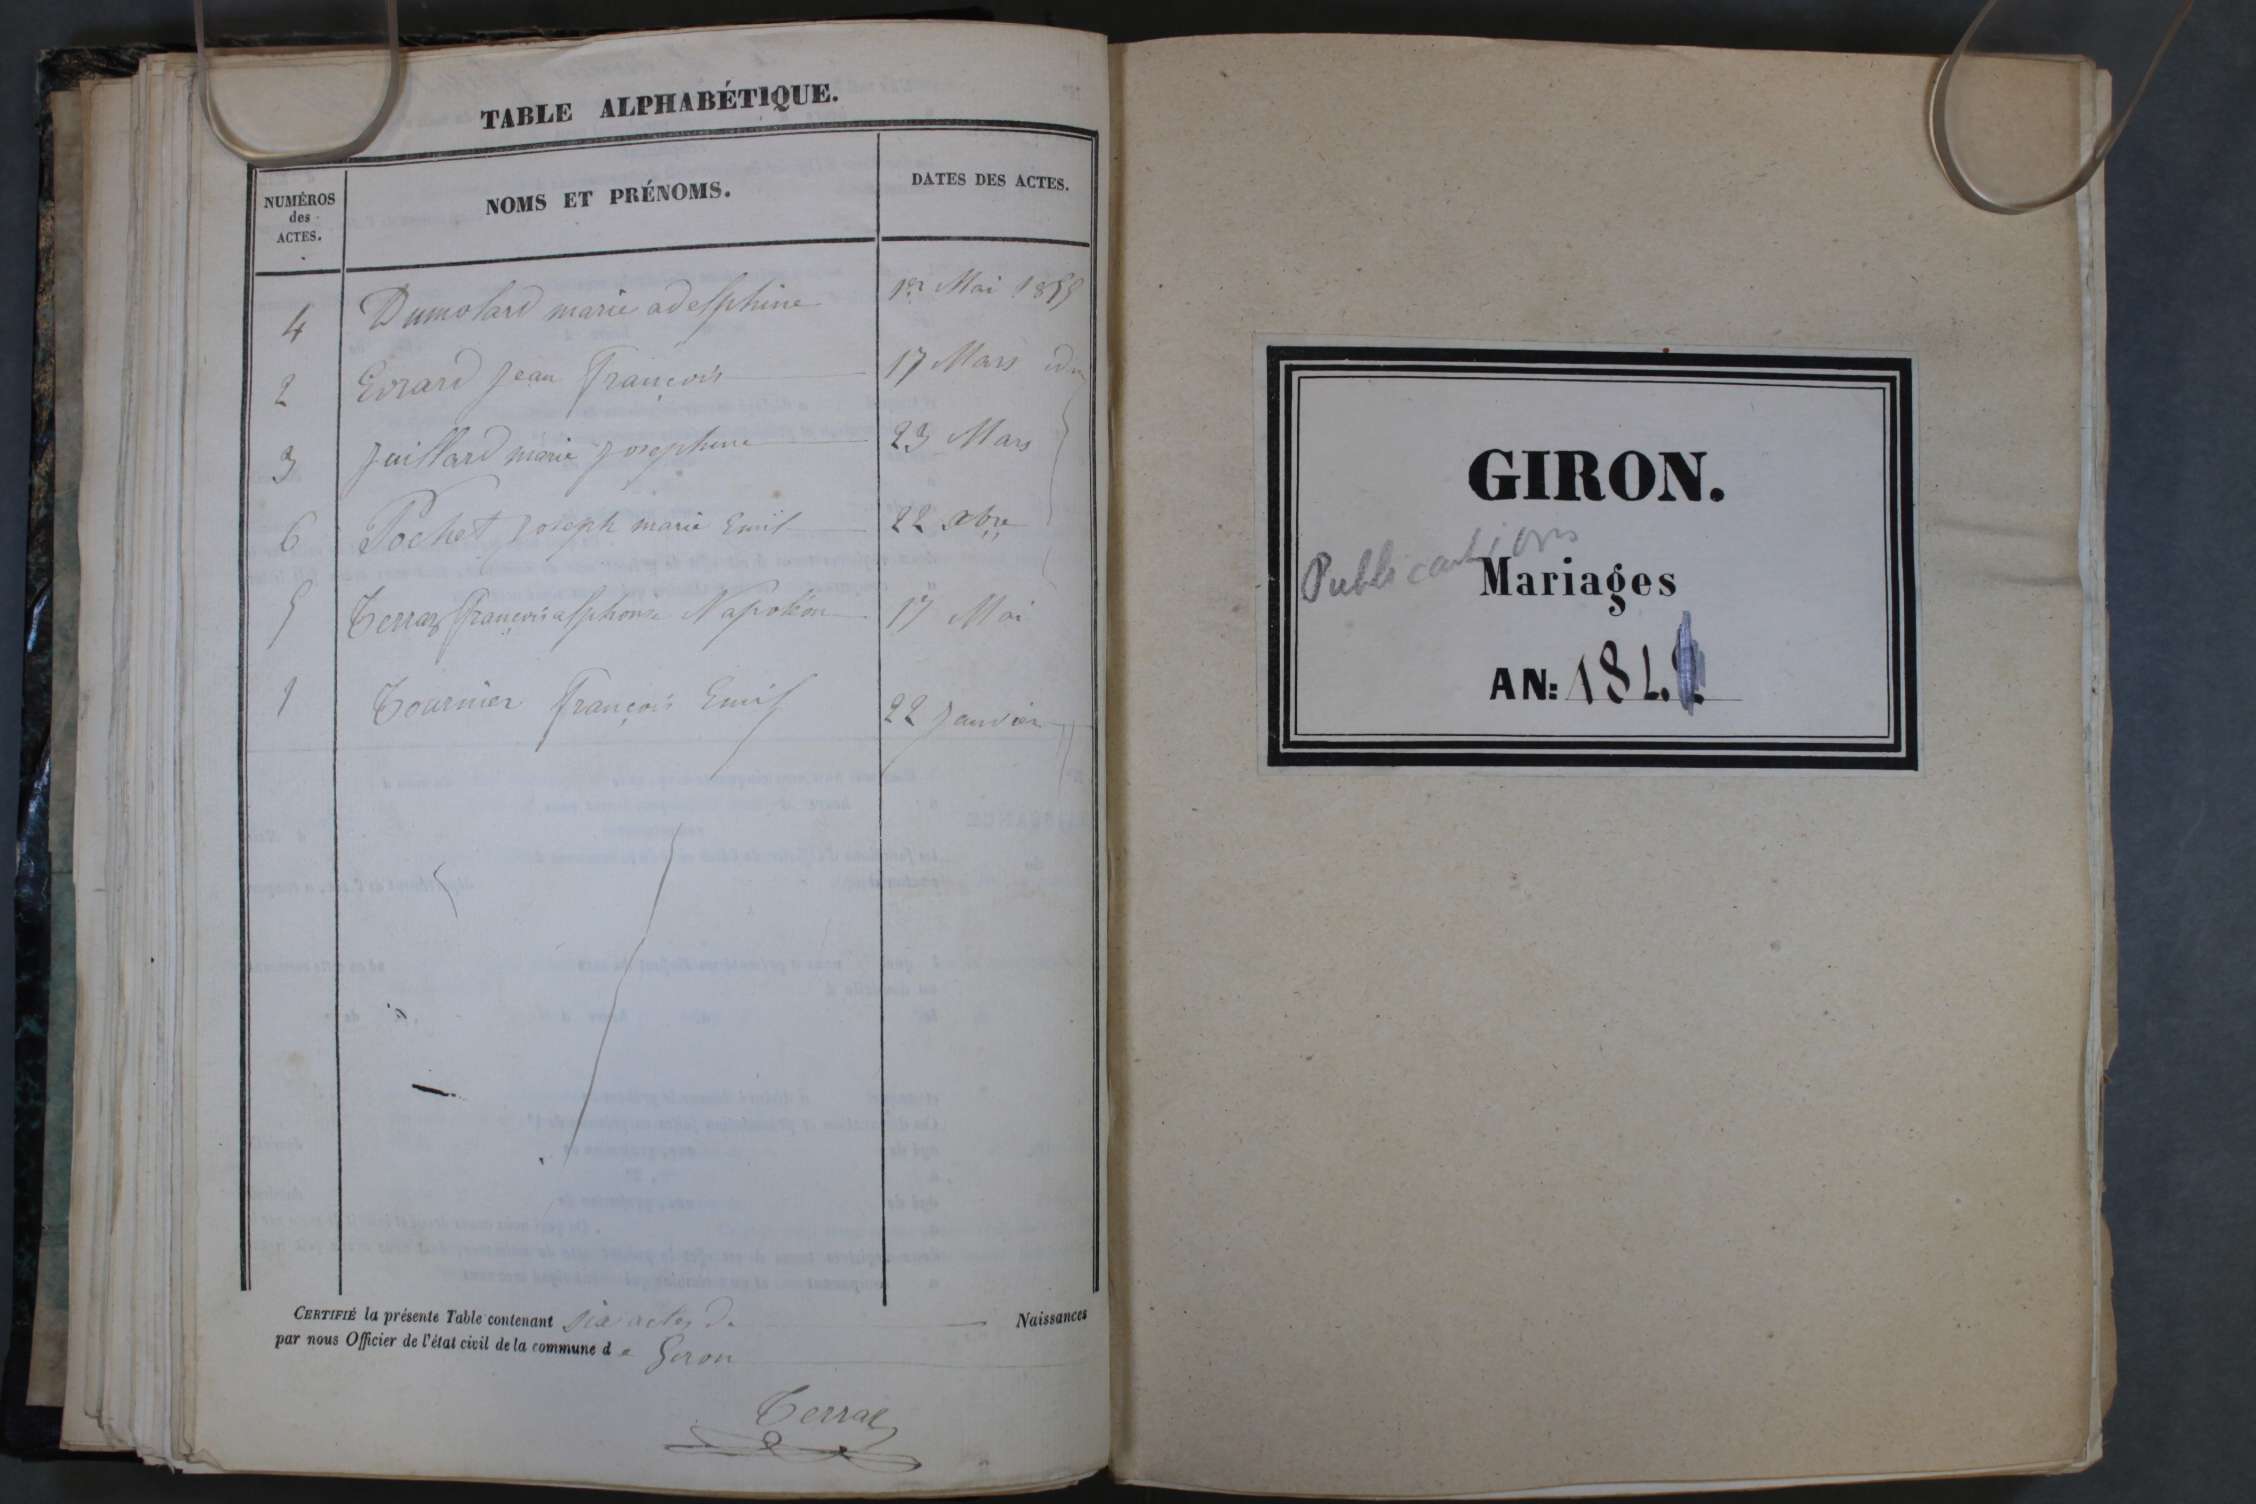 TABLE ALPHABÉTIQUE.
NUMÉROS des ACTES.
NOMS ET PRÉNOMS.
DATES DES ACTES.
4 Dumolard marie adelphine 1er Mai 1855
2 Evrard Jean François 17 Mars idm
3 Juillard marie Josephine 23 Mars
6 Pochet Joseph marie Emil 22 xbre
5 Terraz françois alphonse Napoléon 17 Mai
1 Tournier François Emil 22 Janvier
CERTIFIÉ la présente Table contenant six actes de Naissances
par nous Officier de l'état civil de la commune de Giron
Terraz
GIRON.
Publications
Mariages
AN: 184